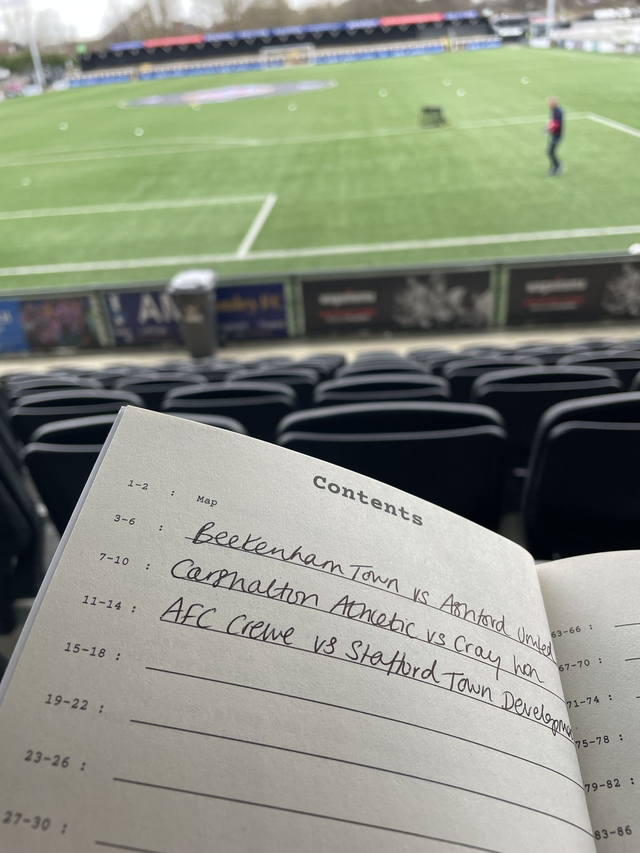 ! AN
Contents
1-2 : Map
3-6 : Beekenham Town vs Ashford United
7-10 : Carshalton Athletic vs Cray Won
11-14 : AFC Crewe vs Stafford Town Developme
15-18 :
19-22 :
23-26 :
27-30 :
63-66 :
67-70 :
71-74 :
75-78 :
79-82 :
83-86 :